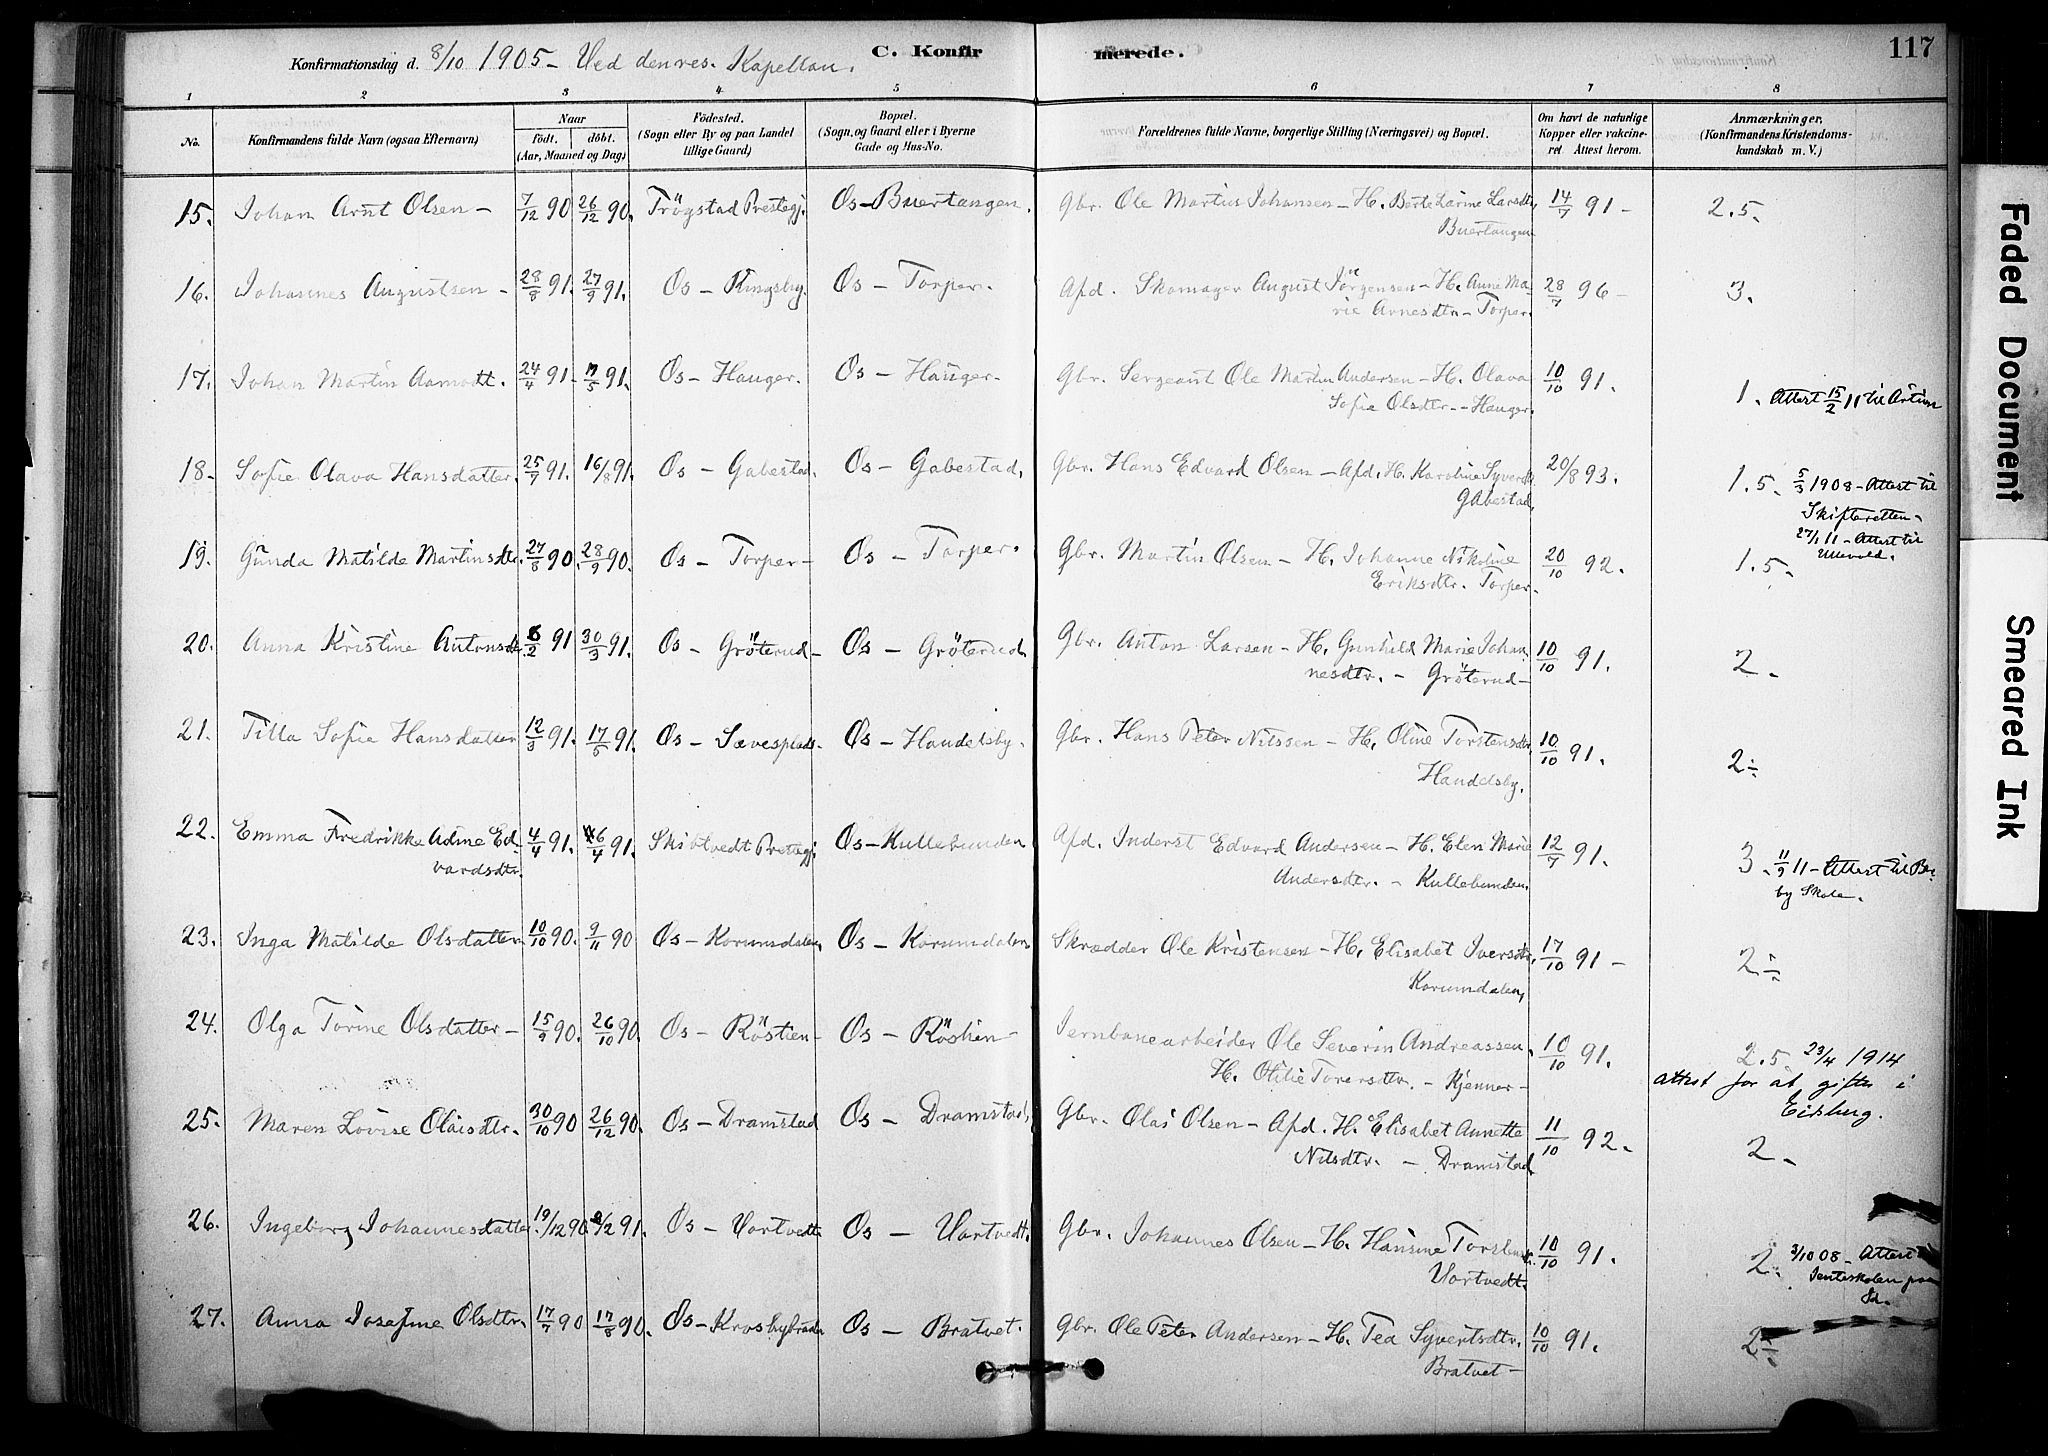 Konfirmationsdag d. 8/10 1905 - Ved den res. Kapellan. C. Konfirmerede. 117
1 2 3 4 5 6 7 8
No. Konfirmandens fulde Navn (ogsaa Efternavn) Naar født. døbt. (Aar, Maaned og Dag) Födested. (Sogn eller By og paa Landet tillige Gaard) Bopæl. (Sogn og Gaard eller i Byerne Gade og Hus-No. Forældrenes fulde Navne, borgerlige Stilling (Næringsvei) og Bopæl. Om havt de naturlige Kopper eller vakcineret. Attest herom. Anmærkninger. (Konfirmandens Kristendomskundskab m. V.)
15. Johan Arnt Olsen - 7/12 90 26/12 90. Trögstad Prestegj. Os - Buertangen. Gbr. Ole Martin Johansen - H. Berte Larine Larsdtr, 14/7 91 - 2.5.
Buertangen
16. Johannes Augustsen - 28/8 91. 27/9 91. Os - Ringsby. Os - Torper. Afd. Skomager August Jörgensen - H. Anne Ma- 28/7 96 - 3.
rie Arnesdtr - Torper.
17. Johan Martin Aamodt. 24/4 91 - 7/5 91. Os - Hauger. Os - Hauger. Gbr. Sergeant Ole Martin Andersen - H. Olava 10/10 91. 1. Attest 15/2 11 til Artium
Sofie Olsdtr. - Hauger.
18. Sofie Olava Hansdatter. 25/7 91. 16/8 91. Os - Gabestad. Os - Gabestad. Gbr. Hans Edvard Olsen - Afd. H. Karoline Syversdtr 20/8 93. 1.5. 5/3 1908 - Attest til
Gabestad. Skifteretten -
27/1 11 - Attest til
Ullevold.
19. Gunda Matilde Martinsdtr. 27/8 90. 28/9 90. Os - Torper - Os - Torper. Gbr. Martin Olsen - H. Johanne Nikoline 20/10 92. 1.5.
Eriksdtr. Torper.
20. Anna Kristine Antonsdtr. 6/2 91 30/3 91. Os - Gröterud - Os - Gröterud Gbr. Anton Larsen - H. Gunhild Marie Johan 10/10 91. 2.
nesdtr. - Gröterud -
21. Tilla Sofie Hansdatter 12/3 91. 17/5 91. Os - Sævesplads. Os - Handelsby. Gbr. Hans Peter Nilssen - H. Oline Torstensdtr. 10/10 91. 2÷
Handelsby.
22. Emma Fredrikke Adine Ed- 4/4 91. 26/4 91. Skibtvedt Prestegj. Os - Kullebunden Afd. Inderst Edvard Andersen - H. Elen Marie 12/7 91. 3. 11/9 11 - Attest til
vardsdtr. Andersdtr. - Kullebunden. by Skole.
23. Inga Matilde Olsdatter 10/10 90. 9/11 90 Os - Korumdalen, Os - Korumdalen Skrædder Ole Kristensen - H. Elisabet Iversdtr. 17/10 91 - 2÷
Korumdalen,
24. Olga Torine Olsdatter - 15/9 90. 26/10 90. Os - Röstien - Os - Röstien - Jernbanearbeider Ole Severin Andreassen. 10/10 91. 2.5 23/4 1914
H. Otilie Torersdtr. - Kjenner - attest for at giftes i
Eidsberg.
25. Maren Lovise Olaisdtr. 30/10 90 26/12 90. Os - Dramstad Os - Dramstad, Gbr. Olai Olsen - Afd. H. Elisabet Annette 11/10 92. 2 -
Nilsdtr. - Dramstad
26. Ingeborg Johannesdatter 19/12 90 2/2 91. Os - Vortvedt Os - Vortvedt. Gbr. Johannes Olsen - H. Hansine Torstensdtr. 10/10 91. 2. 3/10 08 - Attest til
Vortvedt. Jenteskolen paa
27. Anna Josefine Olsdtr. 17/7 90 17/8 90. Os - Krosbybraaten Os - Bratvet. Gbr. Ole Peter Andersen - H. Tea Syvertsdtr. 10/10 91. 2÷
Bratvet -
Faded Document
Smeared Ink